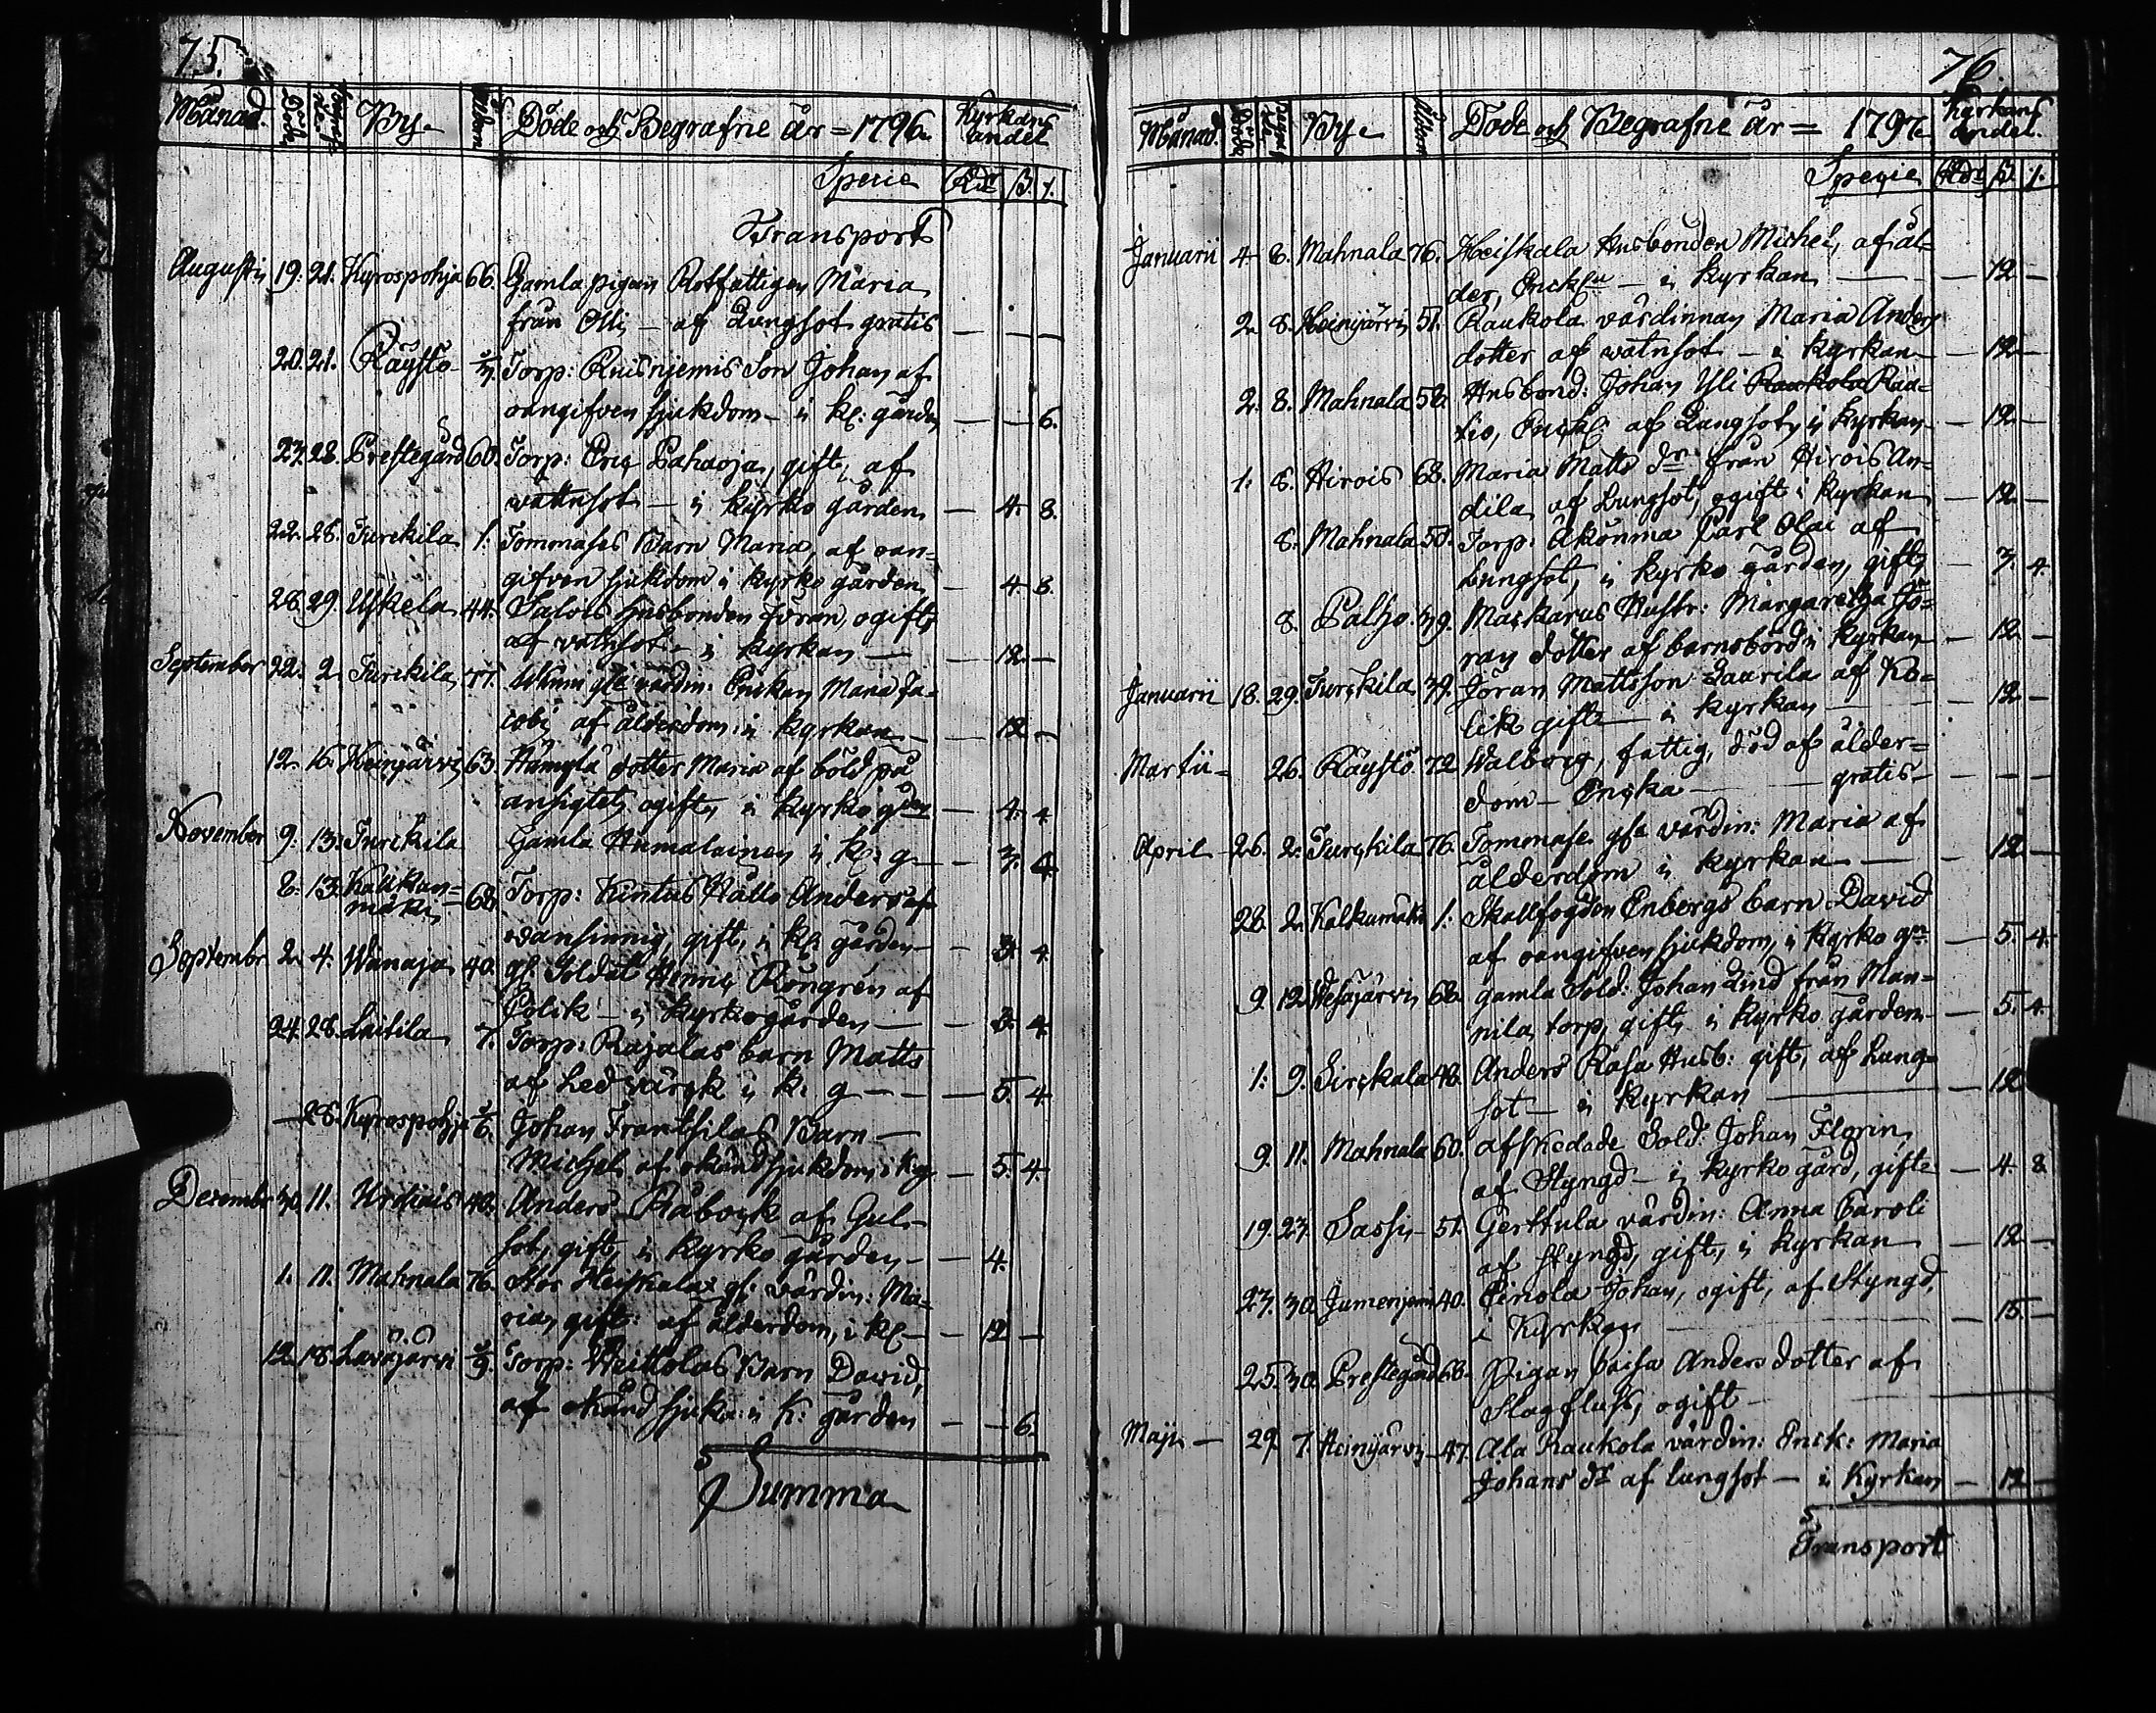 75.
Månad. Döde Begrafne By Åldern Döde och Begrafne år = 1796 Kyrkans andel
Specie Rdr ß. r.
Transport
Augusti 19. 21. Kyrospohja 66. Gamla pigan Rotfattigen Maria
från Olli — af Lungsot gratis — — —
20. 21. Räystö Torp: Son Johan af
oangifven sjukdom — i kl: gården — — 6.
27. 28. Prestegård 60. Torp: Eric Pahaoja, gift, af
wattusot — i kyrko gården — 4. 8.
22. 28. Turckila 1. Tommases Barn Maria, af oan-
gifven sjukdom i kyrko gården — 4. 8.
28. 29. Uskela 44. Husbonden Jöran, ogift,
af watusot — i kyrkan — — 12. —
September 22. 2. Turckila 77. värdin: Enckan Maria Ja-
cobi af ålderdom i kyrkan — — 12 —
12. 16. Heinjärvi 63 dotter Maria af böld på
ansigtet, ogift, i kyrko gden — 4. 4
November 9. 13. Turckila Gamla Humalainen i k: g — — 3. 4.
8. 13. Kalikan-
mäki 68 Torp: Anders af
wansinnig, gift, i k: gården — — 3. 4
Septembr 2. 4. Wanaja 40. gl. Soldat Henric Röngrén af
Colik — i kyrkogården — — 3. 4.
24. 28. Laitila 7. Torp: Rajalas barn Matts
af Ledvärck i k: g — — — 5. 4.
— 28. Kyrospohja Johan Frantsilas Barn —
Michel, af okänd sjukdom, i Kg — 5. 4.
December 30 11. 40. Anders Råbock af Gul-
sot, gift, i kyrko gården — — 4.
1. 11. Mahnala 76. Stor Heiskala gl. värdin: Ma-
ria, gift: af ålderdom, i k — — 12 —
12. 18. Lavajärvi Torp: Weittolas Barn David,
af okänd sjuka: i K: gården — — 6.
Summa
76.
Månad. Döde Begrafne By Åldern Döde och Begrafne år = 1797 Kyrkans andel.
Specie Rdr ß. r.
Januarii 4 8. Mahnala 76. Heiskala Husbonden Michel, af ål-
der, Enckl — i kyrkan — — 12 —
2. 8. Heinijärvi 51. Raukola värdinnan Maria Anders
dotter af watnsot — i kyrkan — — 12 —
2. 8. Mahnala 58. Husbond: Johan Yli Raukola Rau-
tio, Enckl af Lungsot, i kyrkan — — 12 —
1. 8. Hirois 68. Maria Matts dr från Hirois An-
dila, af Lungsot, ogift i kyrkan — 12 —
8. Mahnala 58. Torp: Åkönma Carl Olai af
Lungsot, i kyrko gården, gift, — 3. 4.
8. Palho 39. Mackarus Hustr: Margaretha Jö-
ran dotter af barnsbörd i kyrkan — — 12 —
Januarii 18. 29. Turckila 39. Jöran Mattsson Laurila af Ko-
lik gift — i kyrkan — — 12 —
Martii = 26. Räystö 72 Walborg, fattig, död af ålder-
dom — Encka — — gratis — — — —
April — 26. 2. Turckila 76. Tommase gla värdin: Maria af
ålderdom i kyrkan — — 12 —
28. 2. Kalkunmäki 1. Skallfogden Enbergs barn David
af oangifven sjukdom, i kyrko gn — 5. 4.
9. 12. Wesajärvi 68. gamla Sold: Johan Lind från Man-
nila, torp, gift, i kyrko gården — 5. 4.
1. 9. Sirckala 48. Anders Rasa Husb: gift, af Lung-
sot — i kyrkan — 12
9. 11. Mahnala 60. afskedade Sold: Johan Florin
af Styngd — i kyrko gård, gift — 4. 8
19. 23. Sassi — 51. Gerttula värdin: Anna Caroli
af styngd, gift, i kyrkan — 12 —
23. 30. Jumeniemi 40. Peinola Johan, ogift, af Styngd,
i kyrkan — 15. —
25. 30. Prestegård 68. Pigan Caisa Anders dotter af
Slagfluss, ogift —
Maji — 29. 7. Heinijärvi — 47. Ala Raukola värdin: Enck: Maria
Johans dr af lungsot — i Kyrkan — 12 —
Transport